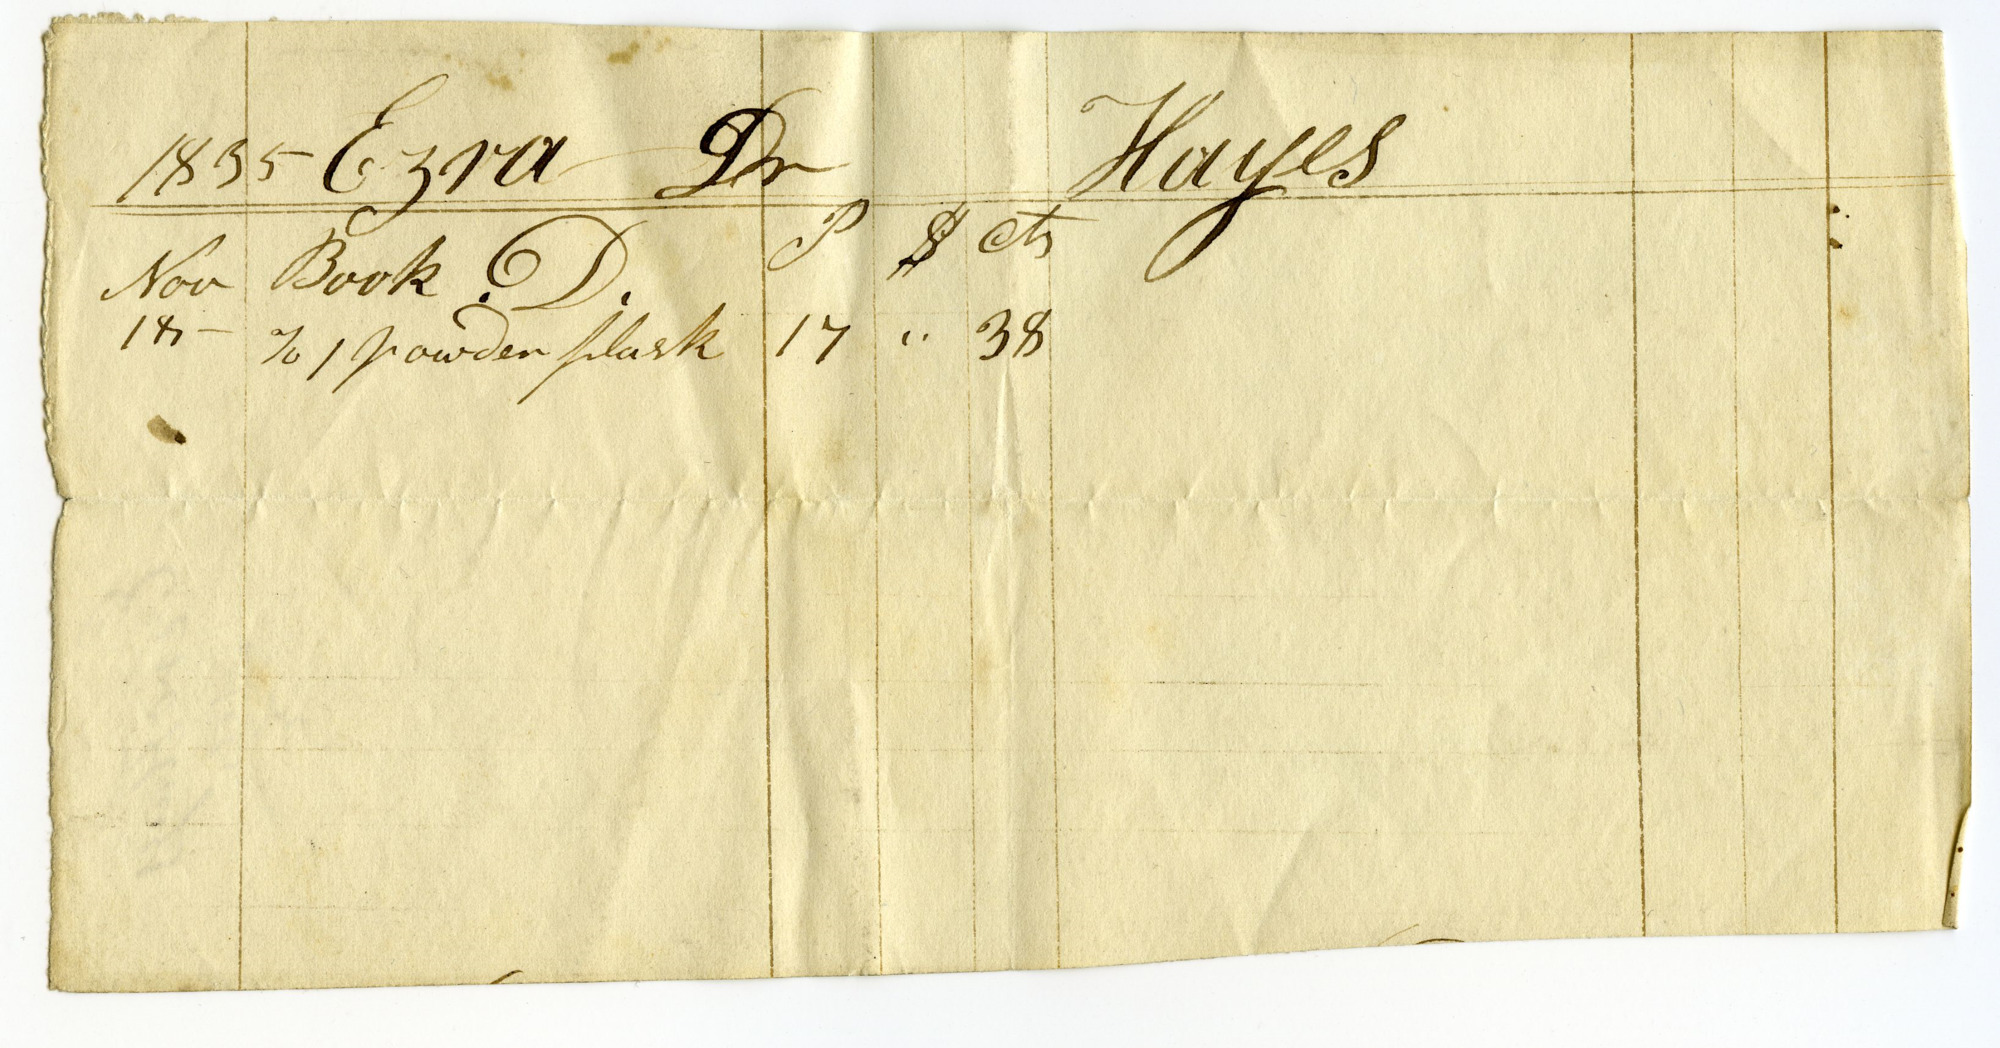 1835 Ezra Dr Hayes
Nov Book .D. P $ cts
18th To 1 powder flask 17 " 38